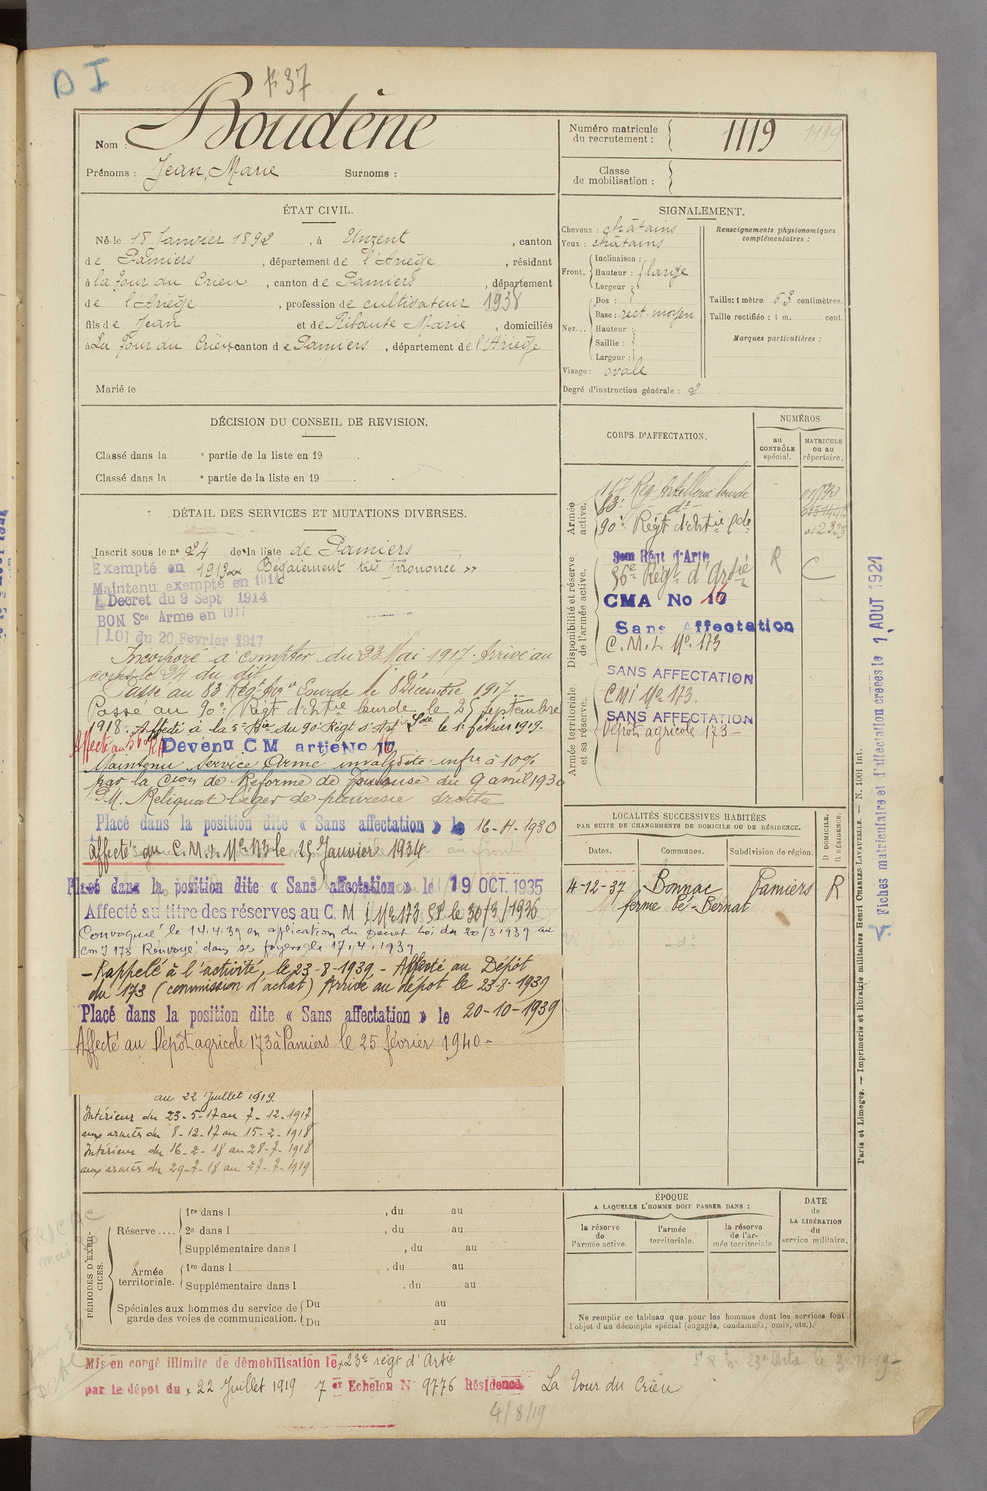 D I
37
Nom : Boudène
Prénoms : Jean, Marie Surnoms :
Numéro matricule du recrutement : 1119 1119
Classe de mobilisation :
ÉTAT CIVIL.
Né le 18 Janvier 1892, à Unzent, canton
de Pamiers, département de l'Ariège, résidant
à la Tour du Crieu, canton de Pamiers, département
de l'Ariège, profession de cultivateur 1938
fils de Jean et de Ribaute Marie, domiciliés
à La Tour du Crieu canton de Pamiers, département de l'Ariège
Marié le
SIGNALEMENT.
Cheveux : châtains
Yeux : châtains
Front.
Inclinaison :
Hauteur : large
Largeur :
Nez...
Dos :
Base : rect. moyen
Hauteur :
Saillie :
Largeur :
Visage : ovale
Renseignements physionomiques complémentaires :
Taille : 1 mètre 63 centimètres.
Taille rectifiée : 1 m. cent.
Marques particulières :
Degré d'instruction générale : 2
DÉCISION DU CONSEIL DE REVISION.
Classé dans la e partie de la liste en 19 .
Classé dans la e partie de la liste en 19 .
DÉTAIL DES SERVICES ET MUTATIONS DIVERSES.
Inscrit sous le n° 24 de la liste de Pamiers
Exempté en 1913 Bégaiement très prononcé »
Maintenu exempté en 1914
Décret du 9 Sept 1914
BON Sce Armé en 1917
Loi du 20 Fevrier 1917
Incorporé à compter du 23 Mai 1917. Arrivé au
corps le 24 du dit
Passé au 83 Rég. Lourde le 8 Décembre 1917
Passé au 90e Régt d'Artie lourde le 25 Septembre
1918. Affecté à la 5e du 90e Régt d'Art Lde le 1er février 1919.
Devenu C M artie No 16
Maintenu Service Armé invalidité infre à 10%
par la Cion de Réforme de Toulouse du 9 avril 1930
P.M. Reliquat léger de pleurésie droite
Placé dans la position dite « Sans affectation » le 16-11-1930
affecté au C.M. No 173 le 25 Janvier 1934
Placé dans la position dite « Sans affectation » le 19 OCT. 1935
Affecté au titre des réserves au C. M I No 173 le 30/3/1936
Convoqué le 14.4.39 en application du Décret Loi du 20/3/1939 au
CMI 173 Renvoyé dans ses foyers le 17.4.1939
– Rappelé à l'activité, le 23-8-1939 – Affecté au Dépôt
du 173 (commission d'achat) Arrivé au dépôt le 23-8-1939
Placé dans la position dite « Sans affectation » le 20-10-1939
Affecté au Dépôt agricole 173 à Pamiers le 25 février 1940 –
au 22 Juillet 1919.
Intérieur du 23-5-17 au 7-12-1917
aux armées du 8-12-17 au 15-2-1918
Intérieur du 16-2-18 au 28-7-1918
aux armées du 29-7-18 au 27-7-1919
CORPS D'AFFECTATION.
NUMÉROS
au CONTRÔLE spécial.
MATRICULE ou au répertoire.
Armée active.
117 Rég Artillerie lourde
83e do
90e Régt d'Artie Lde
Disponibilité et réserve de l'armée active.
Régt d'Artie
56e Régt d'Artie R C
CMA No 16
Sans Affectation
C.M.I. No 173
SANS AFFECTATION
Armée territoriale et sa réserve.
CMI No 173
SANS AFFECTATION
Dépôt agricole 173 –
LOCALITÉS SUCCESSIVES HABITÉES
PAR SUITE DE CHANGEMENTS DE DOMICILE OU DE RÉSIDENCE.
Dates. Communes. Subdivision de région. D DOMICILE. R RÉSIDENCE.
4-12-37 Bonnac Pamiers R
ferme Bernat
PÉRIODES D'EXERCICES.
Réserve....
1re dans l , du au
2e dans l , du au
Supplémentaire dans l , du au
Armée territoriale.
1re dans l , du au
Supplémentaire dans l , du au
Spéciales aux hommes du service de garde des voies de communication.
Du au
Du au
ÉPOQUE
A LAQUELLE L'HOMME DOIT PASSER DANS :
la réserve de l'armée active.
l'armée territoriale.
la réserve de l'armée territoriale
DATE DE LA LIBÉRATION du service militaire.
Ne remplir ce tableau que pour les hommes dont les services font l'objet d'un décompte spécial (engagés, condamnés, omis, etc.).
Mis en congé illimité de démobilisation le 23e régt d'Artie
par le dépot du 22 Juillet 1919 7 er Echelon N° 9776 Résidence La Tour du Crieu
4/8/19
Paris et Limoges. — Imprimerie et librairie militaires Henri CHARLES-LAVAUZELLE. — N. 1001 Int.
Fiches matriculaire et d'affectation créées le 1 AOUT 1921